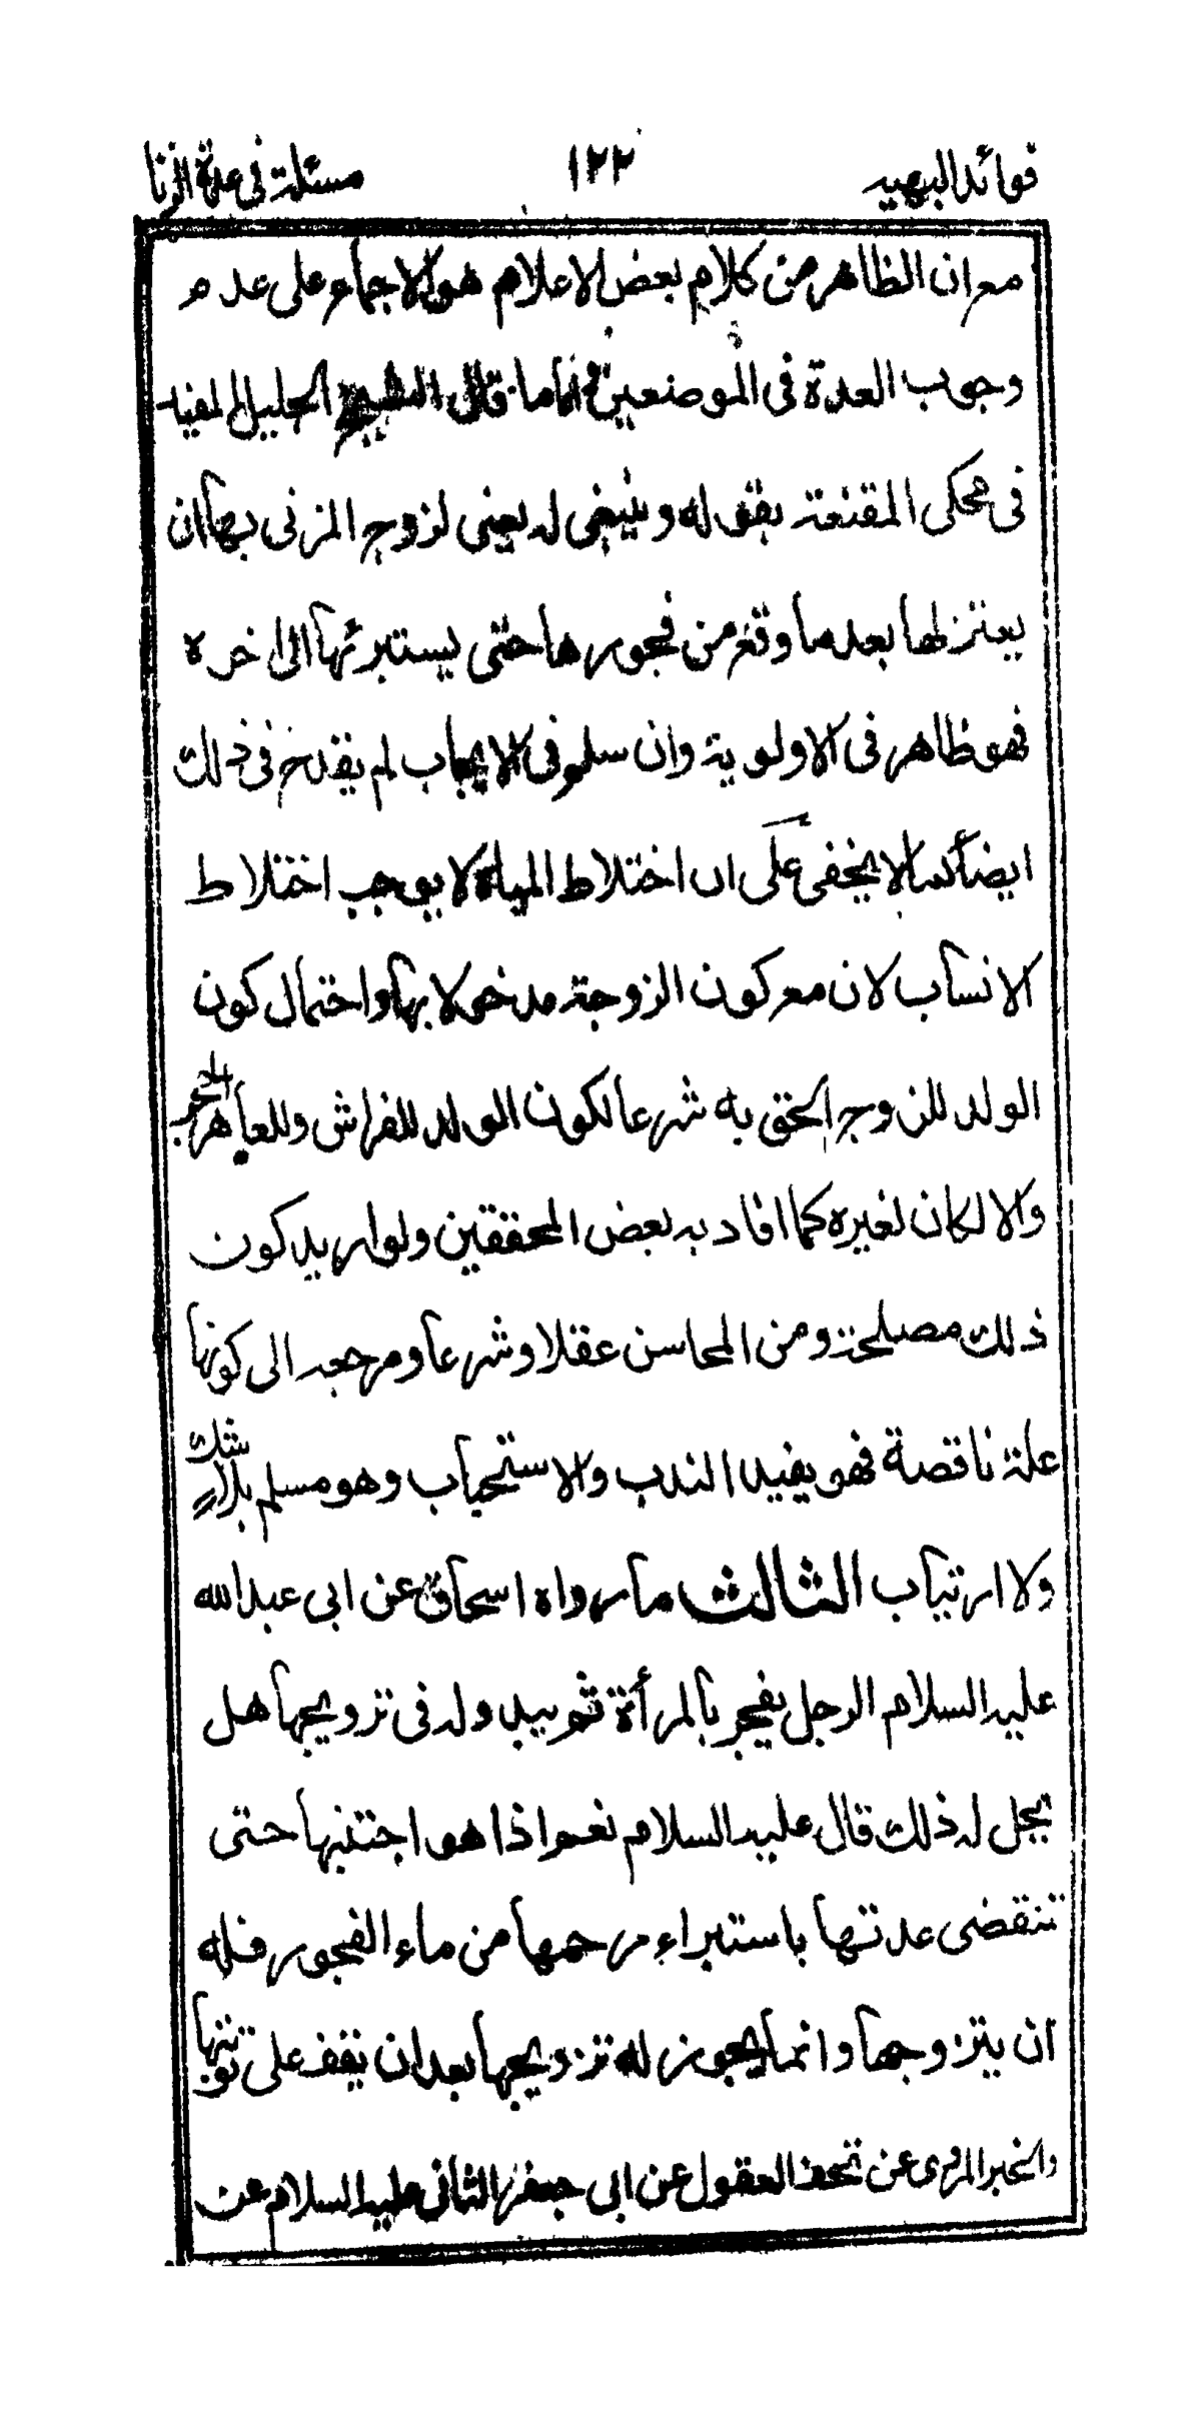 فوائد البهيه ١٢٢ مسئلة فى عدة الزنا
مع ان الظاهر من كلام بعض الاعلام هو الاجماع على عدم
وجوب العدة فى الموضعين فما قال الشيخ الجليل المفيد
فى محكى المقنعة بقوله وينبغى له يعنى لزوج المزنى بها ان
يعتزلها بعد ما وقع من فجورها حتى يستبرئها الى اخره
فهو ظاهر فى الاولوية وان سلم فى الايجاب لم يقدح فى ذلك
ايضا كما لا يخفى على ان اختلاط المياه لا يوجب اختلاط
الانساب لان مع كون الزوجة مدخولا بها واحتمال كون
الولد للزوج الحق به شرعا لكون الولد للفراش وللعاهر الحجر
والا لكان لغيره كما افاد به بعض المحققين ولو اريد كون
ذلك مصلحة ومن المحاسن عقلا وشرعا ومرجعه الى كونها
علة ناقصة فهو يفيد الندب والاستحباب وهو مسلم بلا شك
ولا ارتياب الثالث ما رواه اسحاق عن ابى عبد الله
عليه السلام الرجل يفجر بالمرأة ثم يبد وله فى تزويجها هل
يحل له ذلك قال عليه السلام نعم اذا هو اجتنبها حتى
تنقضى عدتها باستبراء رحمها من ماء الفجور فله
ان يتزوجها وانما يجوز له تزويجها بعد ان يقف على توبتها
والخبر المروى عن تحف العقول عن ابى جعفر الثانى عليه السلام عن